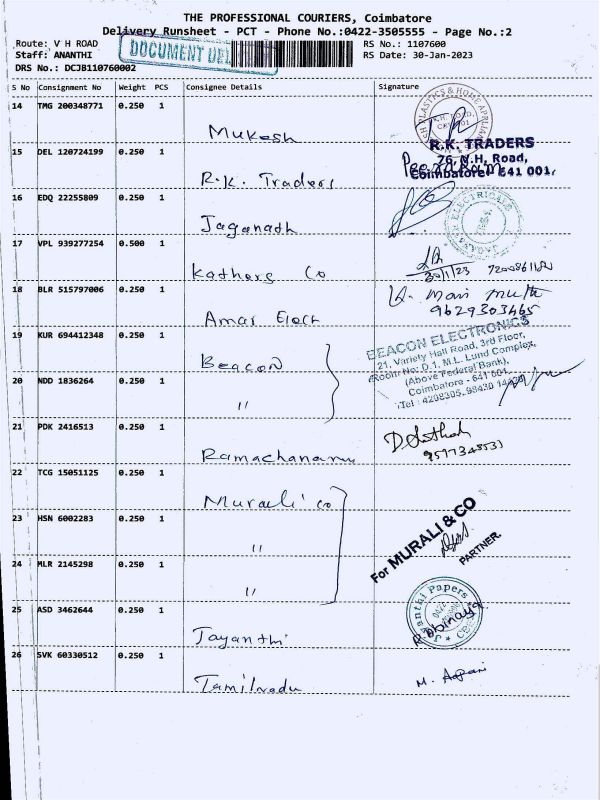 THE PROFESSIONAL COURIERS, Coimbatore
Delivery Runsheet - PCT - Phone No.:0422-3505555 - Page No.:2
Route: V H ROAD
RS No.: 1107600
Staff: ANANTHI
DOCUMENT DEL
RS Date: 30-Jan-2023
DRS No.: DCJB110760002
S No Consignment No Weight PCS Consignee Details Signature
14 TMG 200348771 0.250 1 Mukesh
15 DEL 120724199 0.250 1 R.K. Traders
R.K. TRADERS
76, N.H. Road,
Coimbatore - 641 001.
16 EDQ 22255809 0.250 1 Jaganath
17 VPL 939277254 0.500 1 Kathers Co
30/1/23
18 BLR 515797006 0.250 1 Amar Elect
9629303465
19 KUR 694412348 0.250 1 Beacon
BEACON ELECTRONICS
21, Variety Hall Road, 3rd Floor,
Room No: D.1, M.L. Lund Complex,
(Above Federal Bank),
Coimbatore - 641 001.
20 NDD 1836264 0.250 1 "
21 PDK 2416513 0.250 1
22 TCG 15051125 0.250 1 Murali co
23 HSN 6002283 0.250 1 "
For MURALI & CO
PARTNER.
24 MLR 2145298 0.250 1 "
25 ASD 3462644 0.250 1 Jayanthi
26 SVK 60330512 0.250 1 Tamilnadu